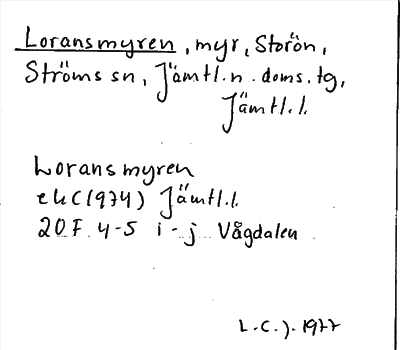 Loransmyren, myr, Storön,
Ströms sn, Jämtl. n. doms. tg,
Jämtl. l.
Loransmyren
ekC(1974) Jämtl. l.
20 F 4-5 i-j Vågdalen
L.C.J. 1977